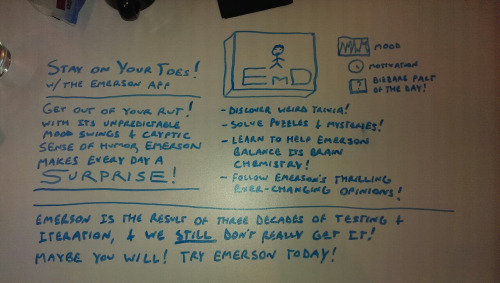 STAY ON YOUR TOES!
W/ THE EMERSON APP
GET OUT OF YOUR RUT!
WITH ITS UNPREDICTABLE
MOOD SWINGS & CRYPTIC
SENSE OF HUMOR, EMERSON
MAKES EVERY DAY A
SURPRISE!
EMD
MOOD
MOTIVATION
?
BIZARRE FACT
OF THE DAY!
- DISCOVER WEIRD TRIVIA!
- SOLVE PUZZLES & MYSTERIES!
- LEARN TO HELP EMERSON
BALANCE ITS BRAIN
CHEMISTRY!
- FOLLOW EMERSON'S THRILLING
EVER-CHANGING OPINIONS!
EMERSON IS THE RESULT OF THREE DECADES OF TESTING &
ITERATION, & WE STILL DON'T REALLY GET IT!
MAYBE YOU WILL! TRY EMERSON TODAY!